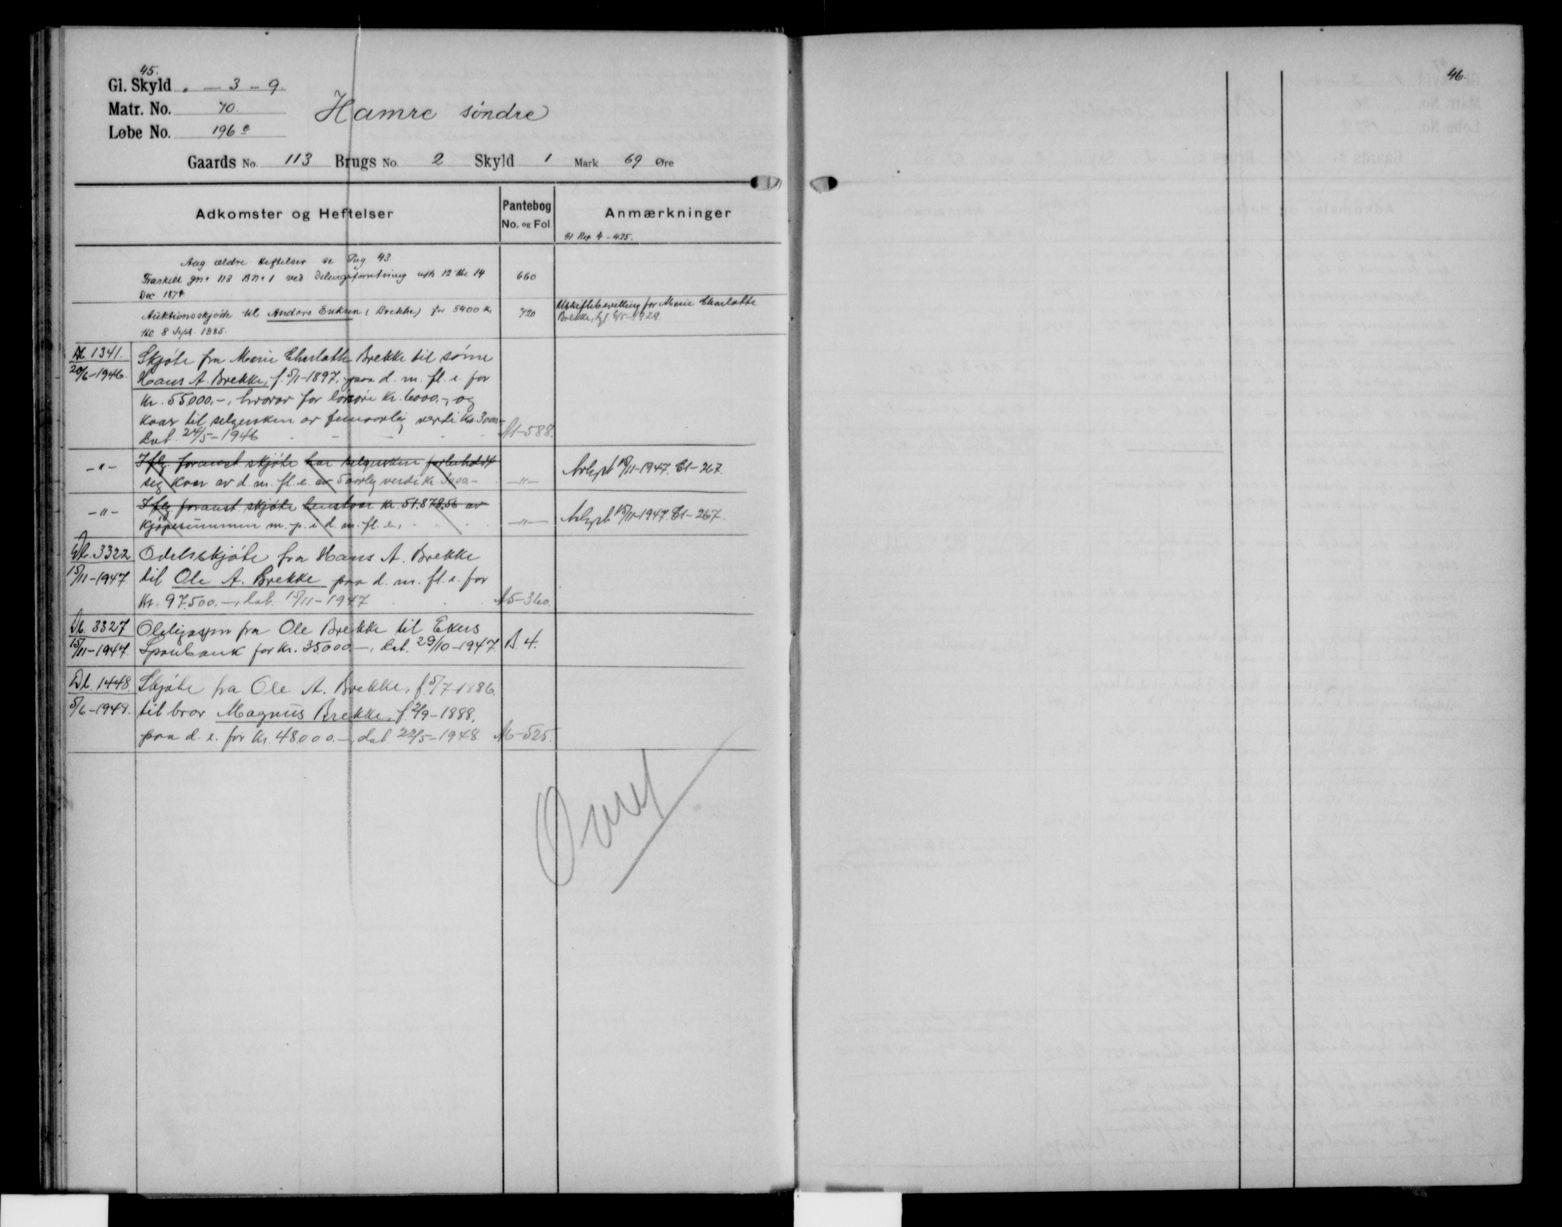 45.
Gl. Skyld „ — 3 - 9.
Matr. No. 70.
Løbe No. 196 e
Hamre søndre
Gaards No. 113 Brugs No. 2 Skyld 1 Mark 69 Øre
Adkomster og Heftelser
Pantebog
No. og Fol
Anmærkninger
91 Reg 4 - 425.
Ang ældre Heftelser se Pag 43
Fraskilt gno 113 Bno 1 ved Delingsforretning afh 12 tle 14 660
Dec 1874.
Auktionsskjøde til Anders Eriksen (Brekke) for 5400 Kr 720
tle 8 Sept. 1885.
Uskiftebevilling for Marie Charlotte
Brekke, tgl 1929.
Db. 1341.
20/6-1946.
Skjøte fra Marie Charlotte Brekke til sønn
Hans A. Brekke, f. 5/1-1897, paa d. m. fl. e. for
Kr. 55000.-, hvorav for løsøre Kr. 6000.-, og
kaar til selgersken av femaarlig verdi Kr. 3000.-
Dat. 24/5-1946 A1-588.
-"- Iflg foranst. skjøte har selgersken forbeholdt
sig kaar av d. m. fl. e. av 5 aarlig verdi kr. 3000.- -"-
Avlyst 15/11-1947. C1-267.
-"- Iflg foranst. skjøte henstaar Kr. 51.878,56 av
kjøpesummen m. p. i d. m. fl. e. -"-
Avlyst 15/11-1947. C1-267.
Db. 3322
15/11-1947
Odelsskjøte fra Hans A. Brekke
til Ole A. Brekke paa d. m. fl. e. for
Kr. 97.500.-, dat. 15/11-1947 A5-360.
Db. 3327
15/11-1947.
Obligasjon fra Ole Brekke til Ekers
Sparebank for kr. 35000.-, dat. 29/10-1947 B 4.
Db. 1448
5/6-1948.
Skjøte fra Ole A. Brekke, f. 5/7-1886
til bror Magnus Brekke, f. 2/9-1888,
paa d. e. for Kr. 48000.-, dat. 22/5-1948 A6-525.
Overf
46.